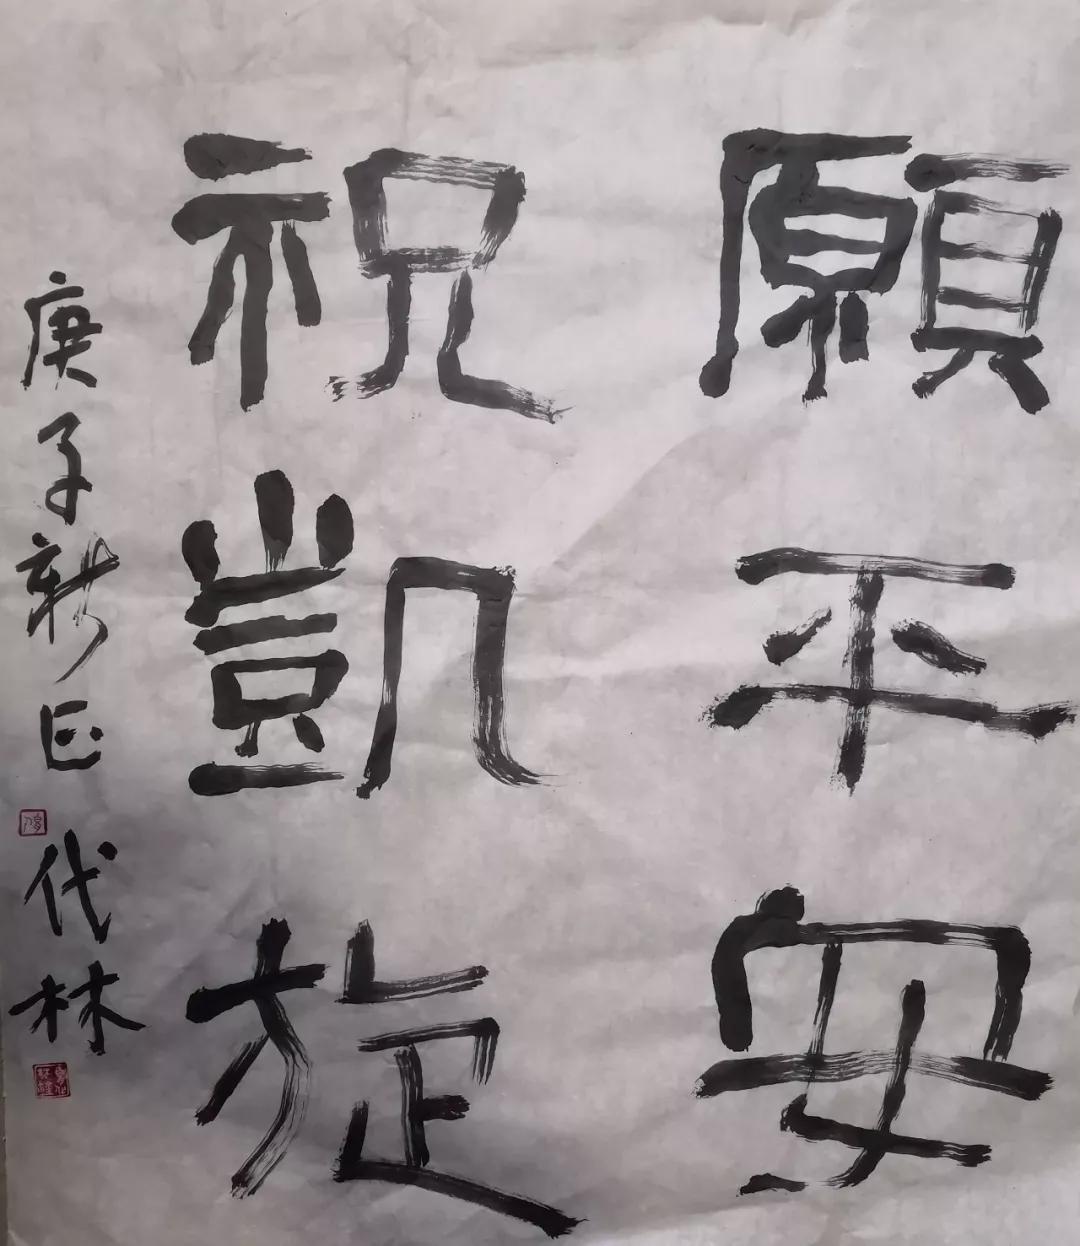 願平安
祝凱旋
庚子新正代林